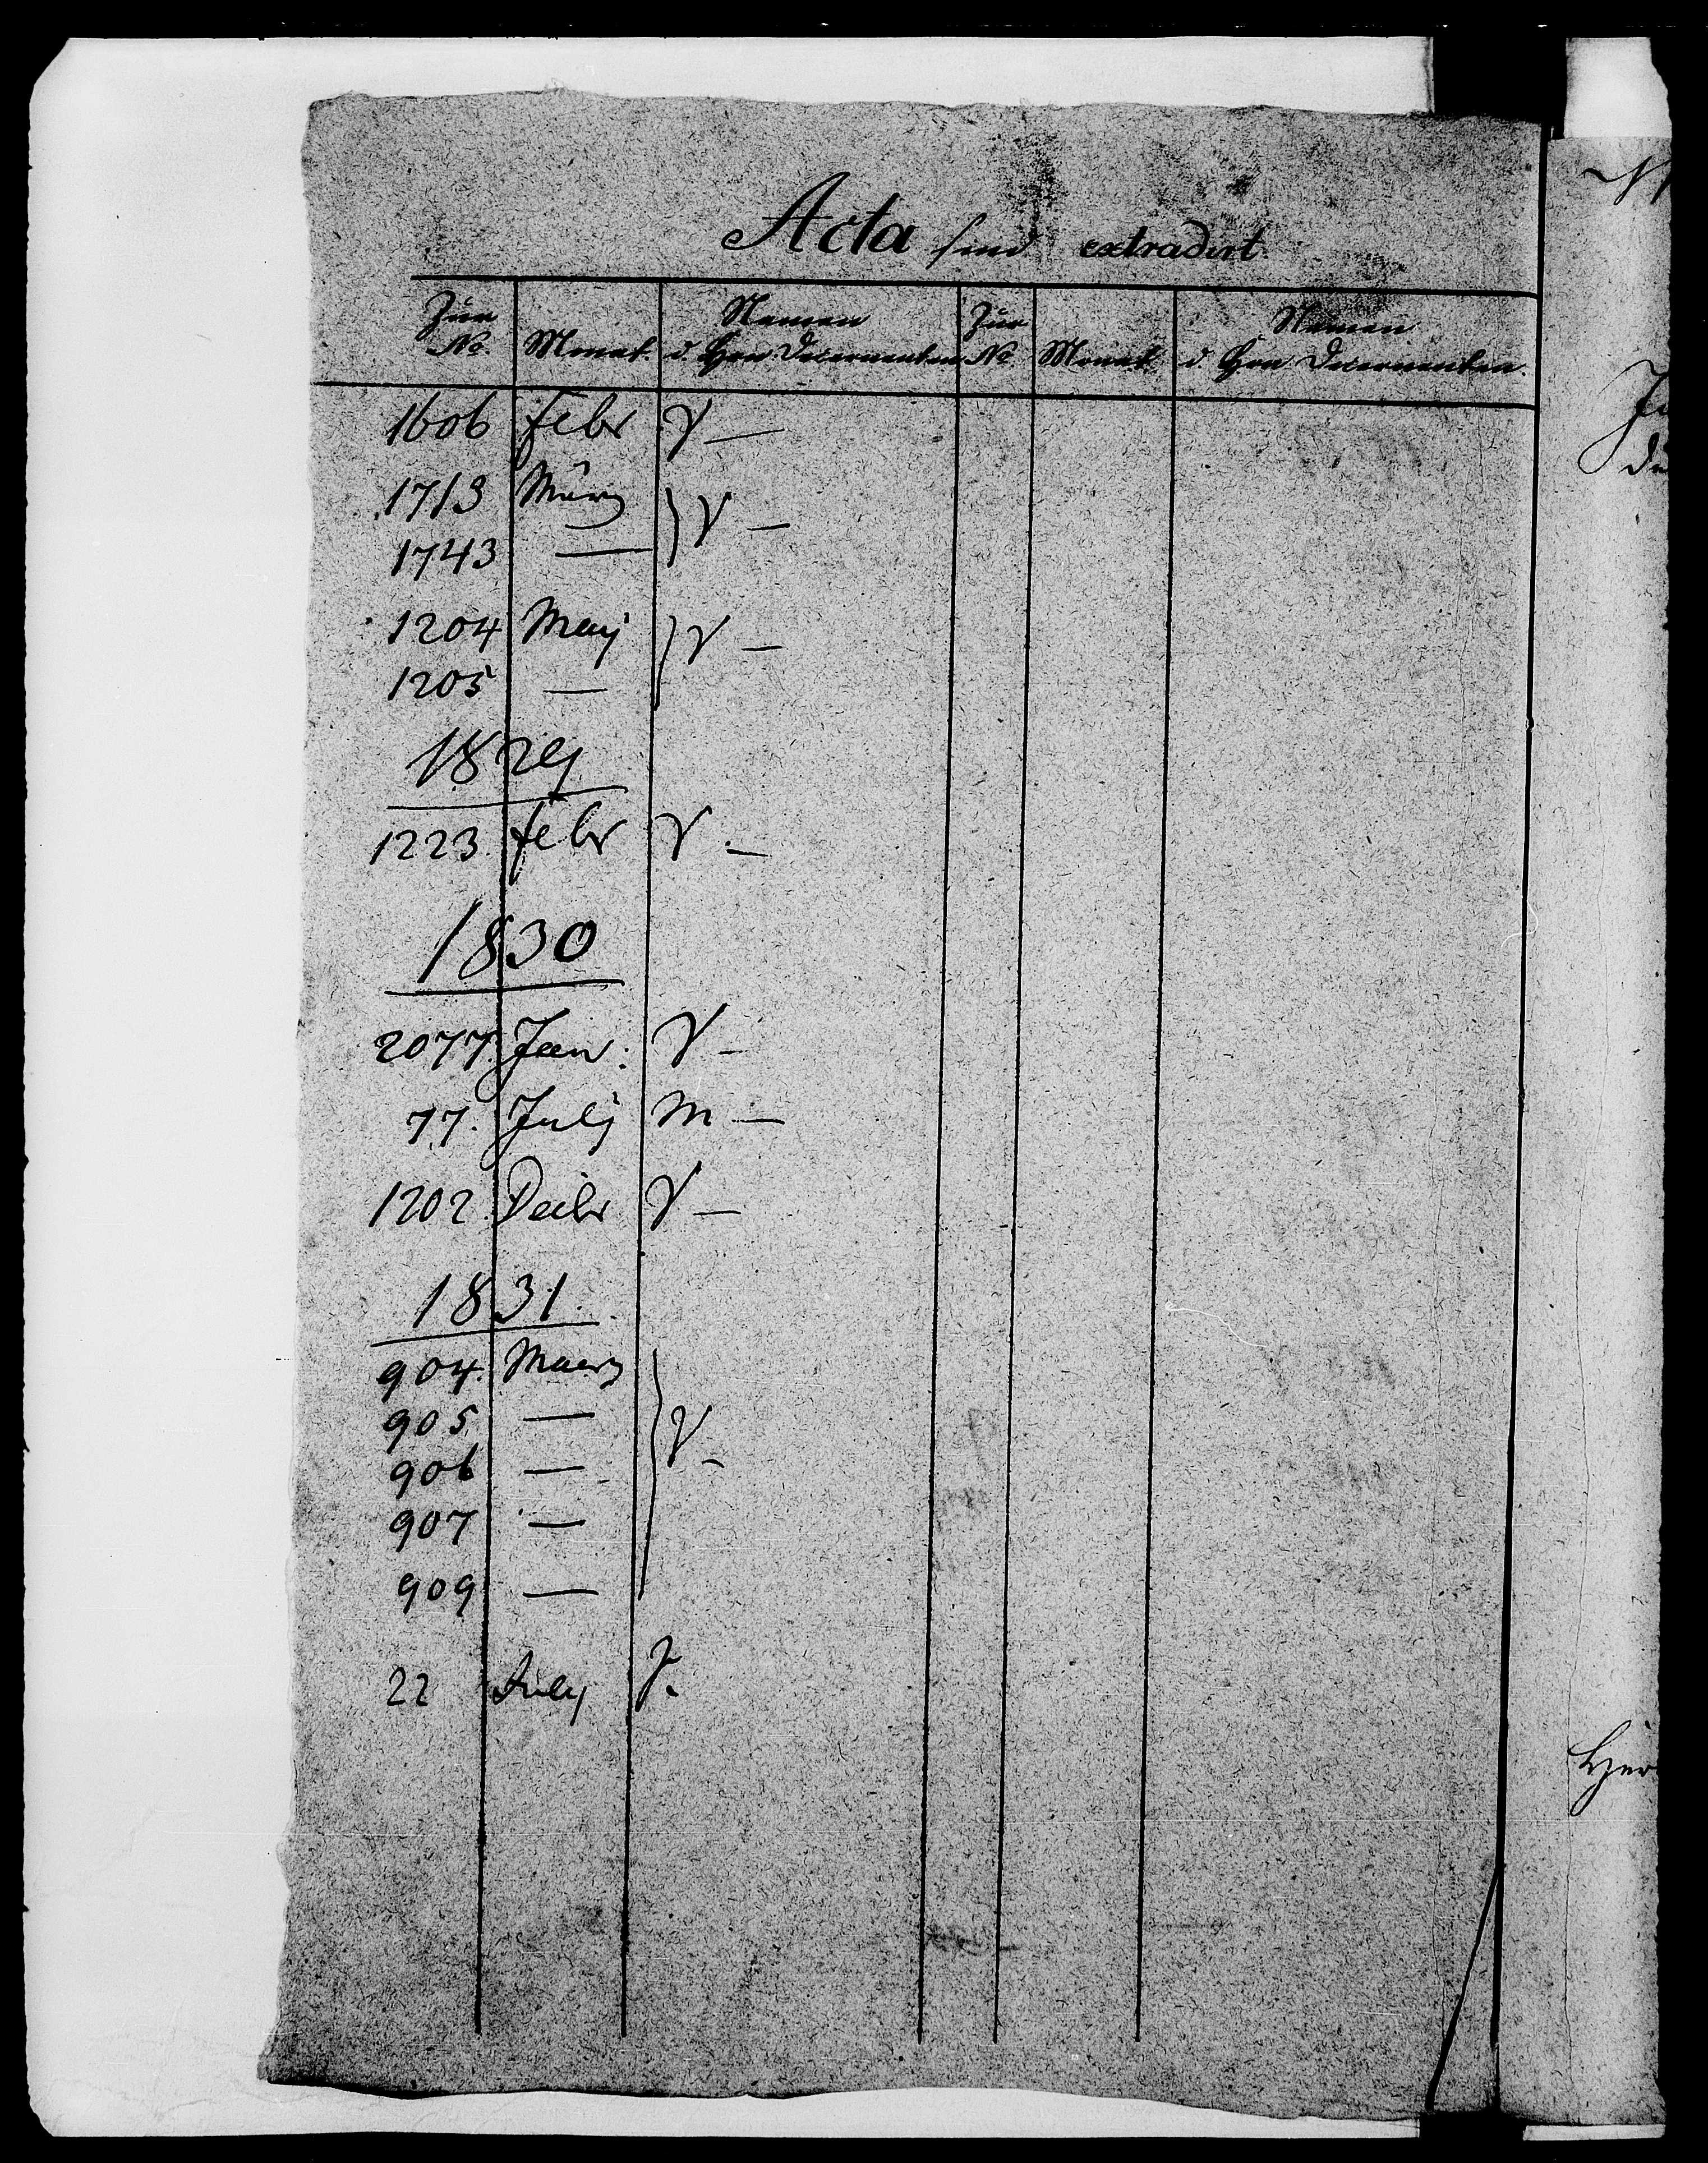 Acta sind extradirt.
Zur No. Monat. Namen d. Hrn. Decernenten Zur No. Monat. Namen d. Hrn. Decernenten.
1606 Febr V —
1713 März } V —
1743 —
1204 Maij } V —
1205 —
1829
1223. Febr V. —
1830
2077. Jan: V —
77. Julij M —
1202. Decbr V —
1831.
904. Maerz } V —
905. —
906 —
907 —
909 —
22 July J.